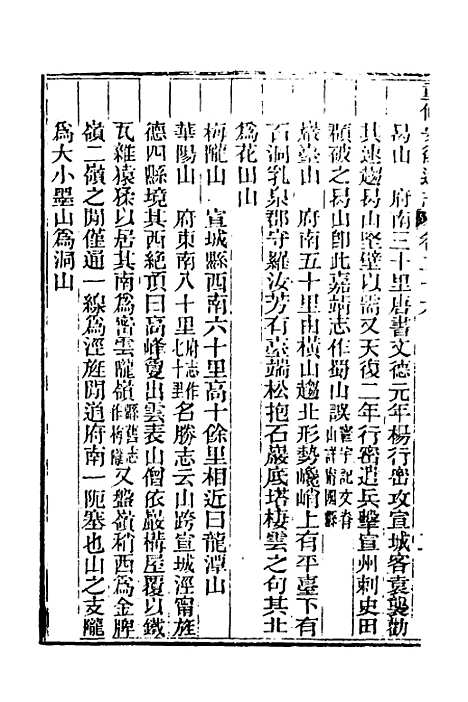 重修安徽通志 卷二十六
曷山 府南三十里唐書文德元年楊行密攻宣城客袁襲勸
其速趨曷山堅壁以需又天復二年行密遣兵擊宣州刺史田
頵破之曷山卽此嘉靖志作蜀山誤
巖臺山 府南五十里由橫山趨北形勢巉峭上有平臺下有
石洞乳泉郡守羅汝芳有臺端松抱石巖底塔棲雲之句其北
爲花田山
梅隴山 宣城縣西南六十里高十餘里相近曰龍潭山
華陽山 府東南八十里府志作七十里名勝志云山跨宣城涇甯旌
德四縣境其西絕頂曰高峰夐出雲表山僧依巖構屋覆以鐵
瓦雜猿猱以居其南爲密雲隴嶺縣舊志作梅隴又盤嶺稍西爲金牌
嶺二嶺之閒僅通一線爲涇旌閒道府南一阨塞也山之支隴
爲大小墨山爲洞山